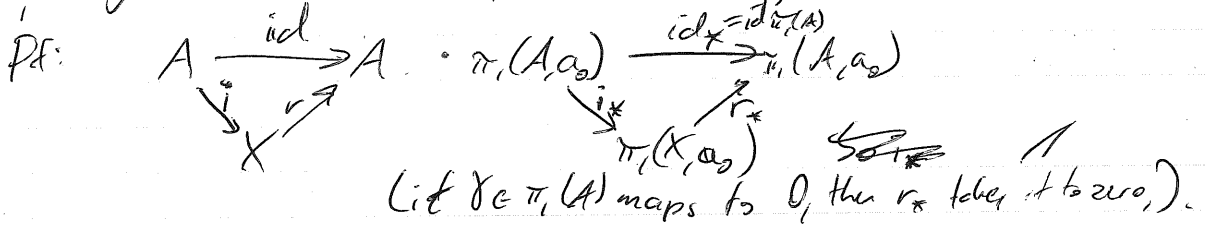 Pf: A id A . π₁(A,a₀) id_* = id π₁(A) π₁(A,a₀)
i r i_* r_*
X π₁(X,a₀)
(if γ ∈ π₁(A) maps to 0, then r_* takes it to zero,).